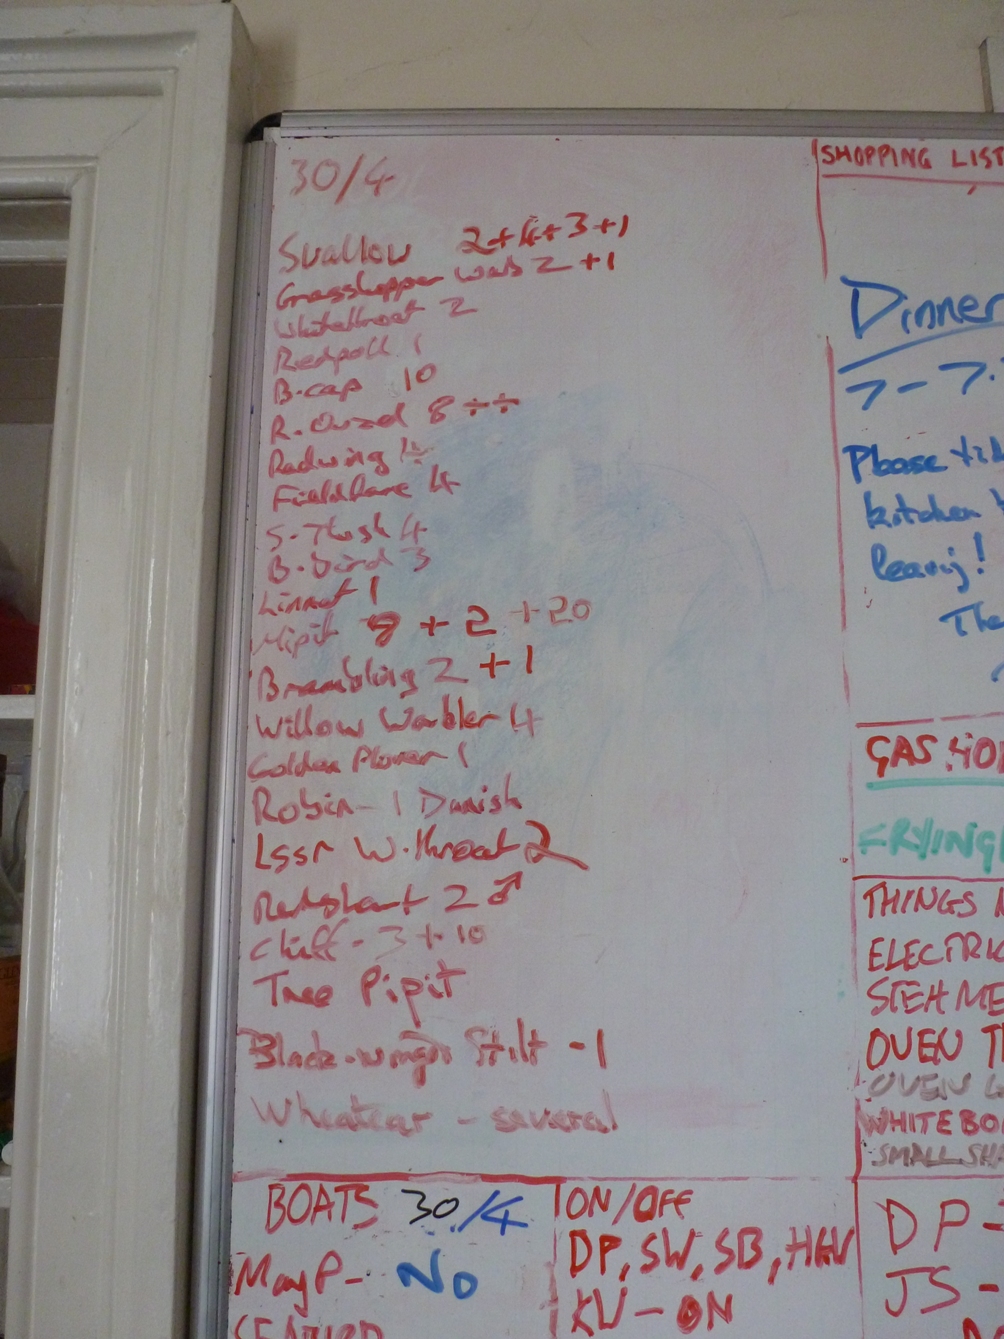 30/4
Swallow 2+4+3+1
Grasshopper warb 2 +1
Whitethroat 2
Redpoll 1
B.cap 10
R. Ouzel 8 ++
Redwing
Fieldfare 4
S. Thrsh 4
B. bird 3
Linnet 1
Mipit + 2 +20
Brambling 2 + 1
Willow Warbler 4
Golden Plover 1
Robin - 1 Danish
Lssr W.throat 2
Redstart 2 ♂
Chiff - 3 + 10
Tree Pipit
Black-wingd Stilt - 1
Wheatear - several
SHOPPING LIST
Dinner
7 - 7.
Please
kitchen
GAS
FRYING
THINGS
ELECTRIC
OVEN
OVEN
WHITEBO
SMALL
BOATS 30/4
MayP- No
ON/OFF
DP, SW, SB, HGV
KV - ON
DP-
JS-